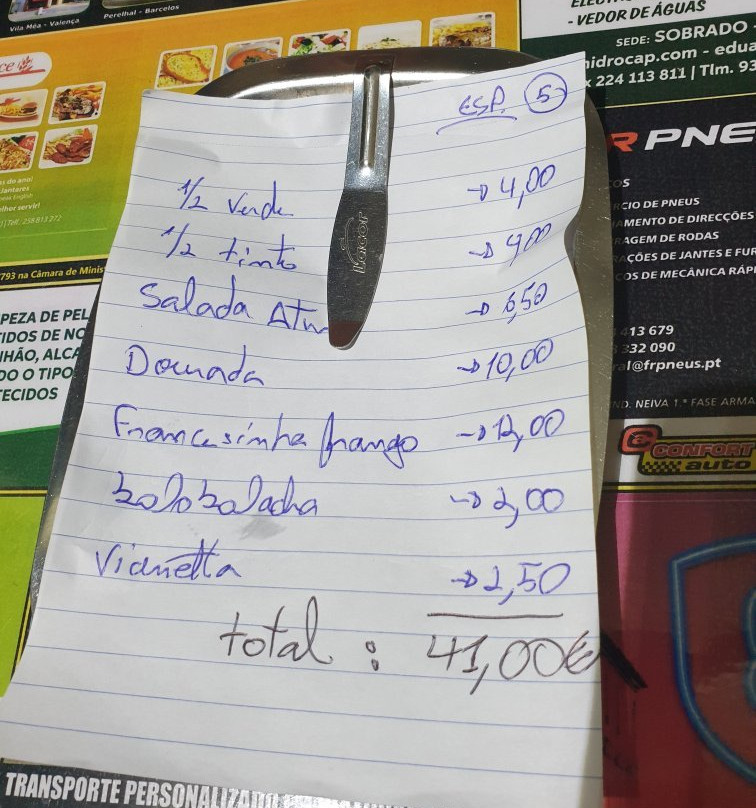 Vila Mêa - Valença
Perelhal - Barcelos
- VEDOR DE ÁGUAS
SEDE: SOBRADO -
hidrocap.com - edua
x 224 113 811 | Tlm. 93
ce
R PNE
ESP. 5
1/2 Verde → 4,00
1/2 tinto → 4,00
Salada Atu → 6,50
Dourada → 10,00
Francesinha frango → 12,00
bolo bolacha → 2,00
Vianetta → 2,50
total : 41,00€
lacor
OS
RCIO DE PNEUS
AMENTO DE DIRECÇÕES
RAGEM DE RODAS
AÇÕES DE JANTES E FUR
OS DE MECÂNICA RÁPI
413 679
332 090
al@frpneus.pt
ND. NEIVA 1.ª FASE ARMA
CONFORT
auto
s do ano!
Jantares
lhor servir!
| Telf. 258 813 272
793 na Câmara de Minis
PEZA DE PEL
IDOS DE NO
NHÃO, ALCA
DO O TIPO
TECIDOS
TRANSPORTE PERSONALIZADO